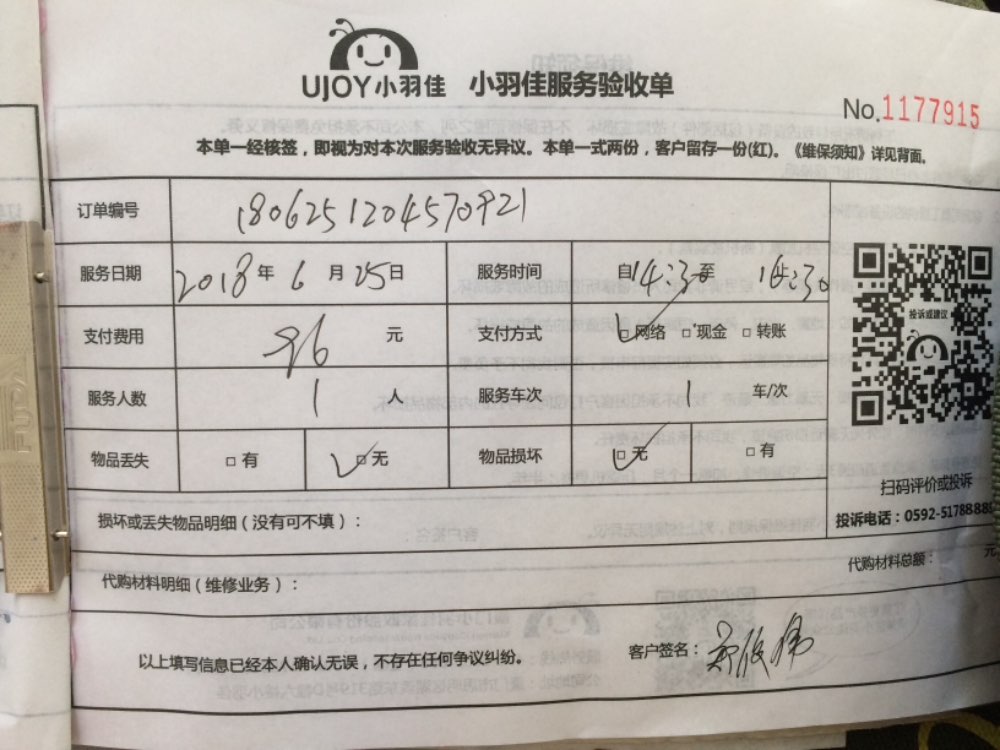 UJOY小羽佳 小羽佳服务验收单
No.1177915
本单一经核签，即视为对本次服务验收无异议。本单一式两份，客户留存一份(红)。《维保须知》详见背面。
订单编号 1806251204570921
服务日期 2018年6月25日 服务时间 自14:3 至 14:30
支付费用 96 元 支付方式 □网络 □现金 □转账
服务人数 1 人 服务车次 1 车/次
物品丢失 □有 □无 物品损坏 □无 □有
投诉或建议
扫码评价或投诉
投诉电话：0592-5178888
损坏或丢失物品明细（没有可不填）：
代购材料明细（维修业务）： 代购材料总额： 元
以上填写信息已经本人确认无误，不存在任何争议纠纷。 客户签名：